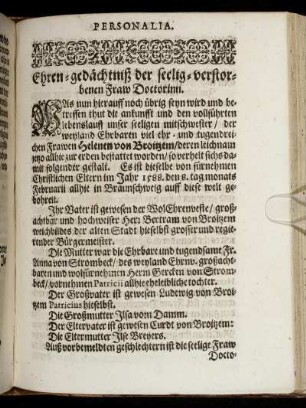 PERSONALIA.
Ehren-gedächtniß der seelig-verstor-
benen Fraw Doctorinn.
WAs nun hierauff noch übrig seyn wird und be-
treffen thut die ankunfft und den vollführten
lebenslauff unser seeligen mitschwester/ der
weyland Ehrbaren viel ehr- und tugendrei-
chen Frawen Helenen von Broitzem/deren leichnam
jetzo allhie zur erden bestattet worden/ so verhelt sichs da-
mit folgender gestalt. Es ist dieselbe von fürnehmen
Christlichen Eltern im Jahr 1588. den 8. tag monats
Februarii allhie in Braunschweig auff diese welt ge-
bohren.
Ihr Vater ist gewesen der WolEhrenveste/ groß-
achtbar und hochweiser Herr Bertram von Broitzem
weichbildes der alten Stadt hieselbst grosser und regie-
render Bürgermeister.
Die Mutter war die Ehrbare und tugendsame Fr.
Anna von Strombeck/ des weyland Ehrw. großacht-
bahren und wolfürnehmen Herrn Gercken von Strom-
beck/ vornehmen Patricii allhie eheleibliche tochter.
Der Großvater ist gewesen Ludewig von Broi-
tzem Patricius hieselbst.
Die Großmutter Ilsa vom Damm.
Der Eltervater ist gewesen Curdt von Broitzem:
Die Eltermutter Ilse Breyers.
Auß vorbemeldten geschlechtern ist die seelige Fraw
Docto-